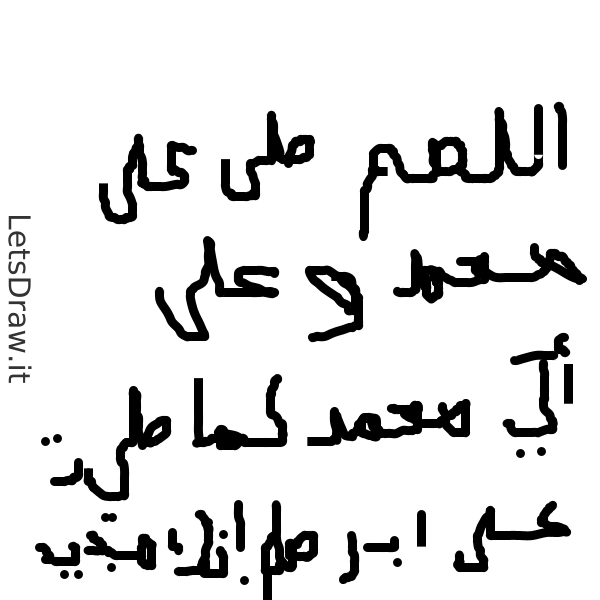 اللهم صل على
محمد وعلى
آل محمد كما صليت
على ابراهيم انك حميد
LetsDraw.it